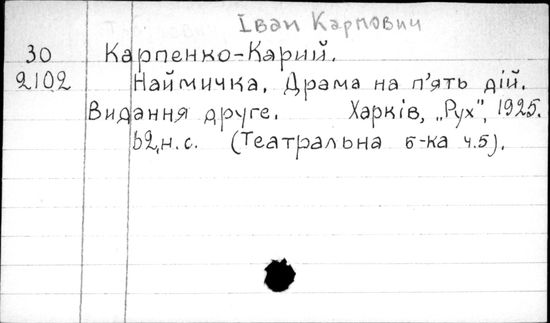 Іван Карпович
30 Карпенко-Карий.
2102 Наймичка. Драма на п'ять дій.
Видання друге. Харків, „Рух", 1925.
62,н.с. (Театральна б-ка ч.5).